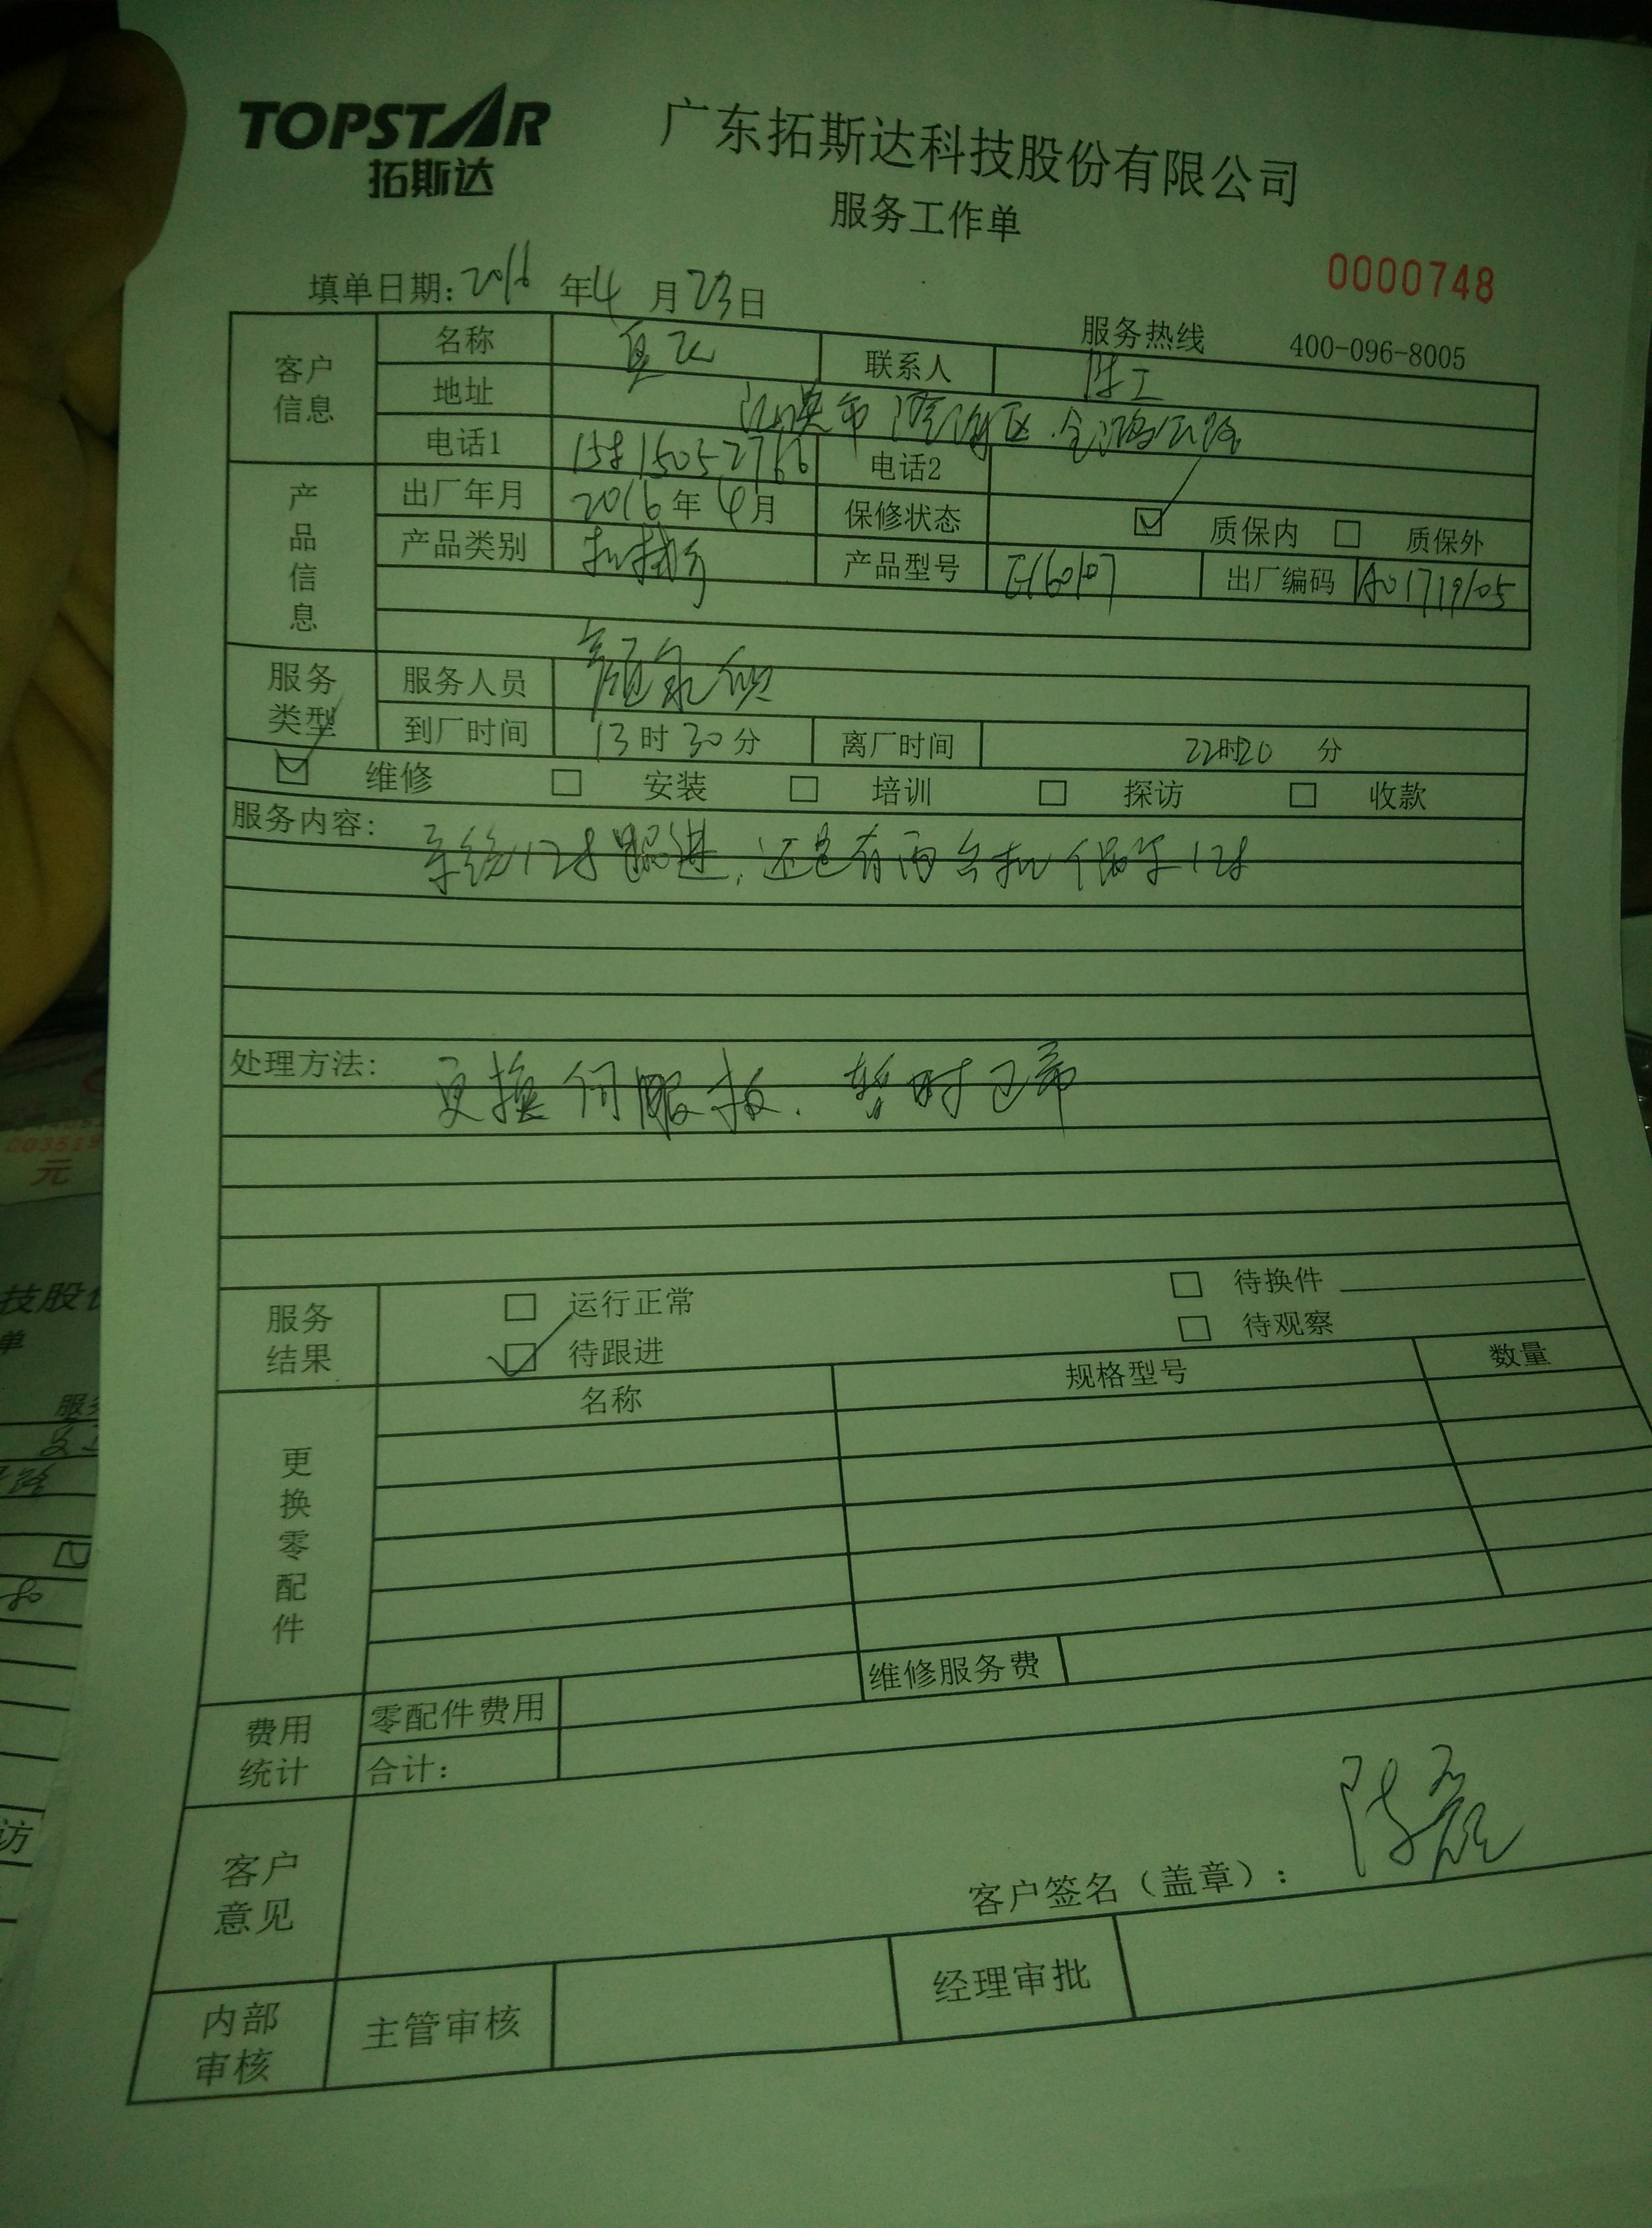 TOPSTAR
拓斯达
广东拓斯达科技股份有限公司
服务工作单
0000748
填单日期：2016 年 4 月 23 日
服务热线 400-096-8005
客户信息
名称 联系人 陈工
地址 武汉市 区
电话1 电话2
产品信息
出厂年月 2016年 4月 保修状态 ☑ 质保内 □ 质保外
产品类别 机械手 产品型号 出厂编码 A01719105
服务类型
服务人员
到厂时间 13时30分 离厂时间 22时20 分
☑ 维修 □ 安装 □ 培训 □ 探访 □ 收款
服务内容：
系统128跟进，还是有两台机 128
处理方法：
更换伺服板，暂时正常
服务结果
□ 运行正常 □ 待换件
☑ 待跟进 □ 待观察
更换零配件
名称 规格型号 数量
费用统计
零配件费用 维修服务费
合计：
客户意见
客户签名（盖章）： 陈
内部审核
主管审核 经理审批
003519
元
技股
单
服
路
访